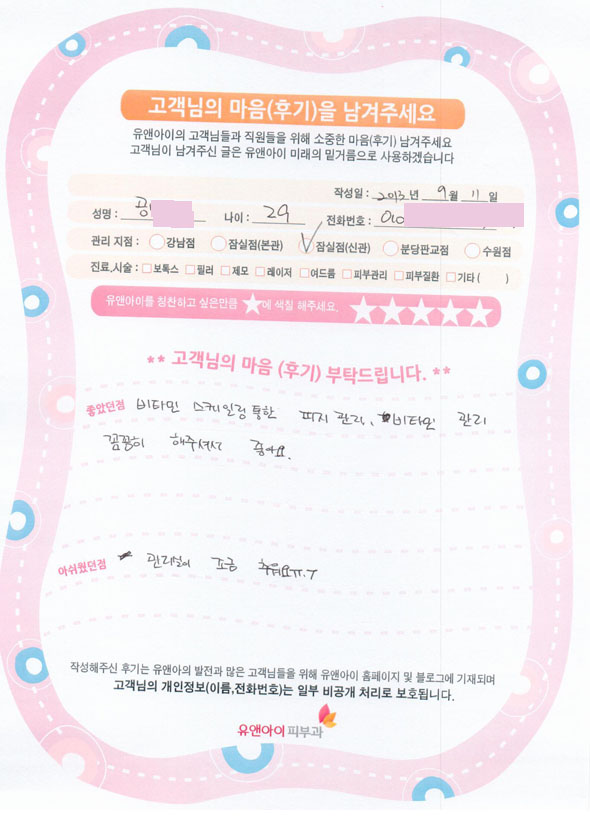 고객님의 마음(후기)을 남겨주세요
유앤아이의 고객님들과 직원들을 위해 소중한 마음(후기) 남겨주세요
고객님이 남겨주신 글은 유앤아이 미래의 밑거름으로 사용하겠습니다
작성일 : 2013 년 9 월 11 일
성명 : 공 나이 : 29 전화번호 : 010
관리 지점 : 강남점 잠실점(본관) 잠실점(신관) 분당판교점 수원점
진료,시술 : 보톡스 필러 제모 레이저 여드름 피부관리 피부질환 기타 ( )
유앤아이를 칭찬하고 싶은만큼 ★에 색칠 해주세요. ★★★★★
** 고객님의 마음 (후기) 부탁드립니다. **
좋았던점 비타민 스케일링 통한 피지 관리, 비타민 관리
꼼꼼히 해주셔서 좋아요.
아쉬웠던점 관리실이 조금 추워요ㅠ.ㅜ
작성해주신 후기는 유앤아의 발전과 많은 고객님들을 위해 유앤아이 홈페이지 및 블로그에 기재되며
고객님의 개인정보(이름,전화번호)는 일부 비공개 처리로 보호됩니다.
유앤아이 피부과